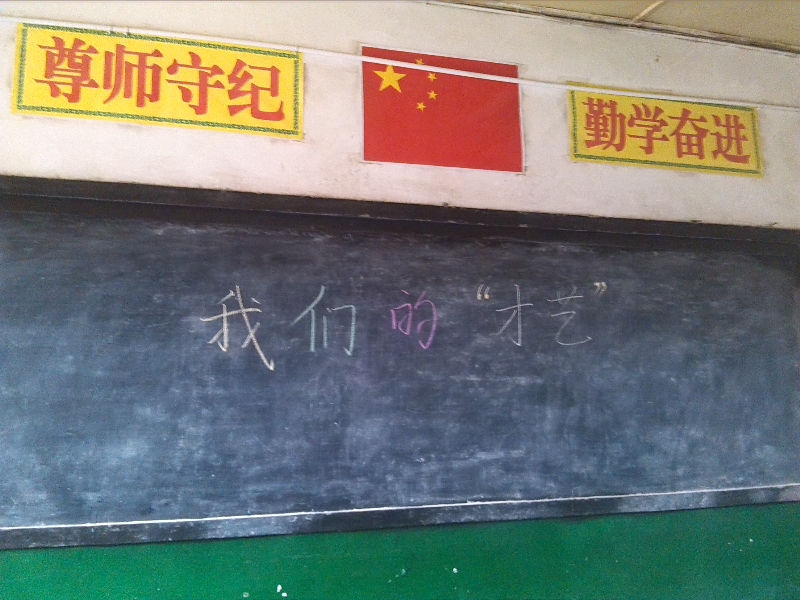 尊师守纪
勤学奋进
我们的“才艺”